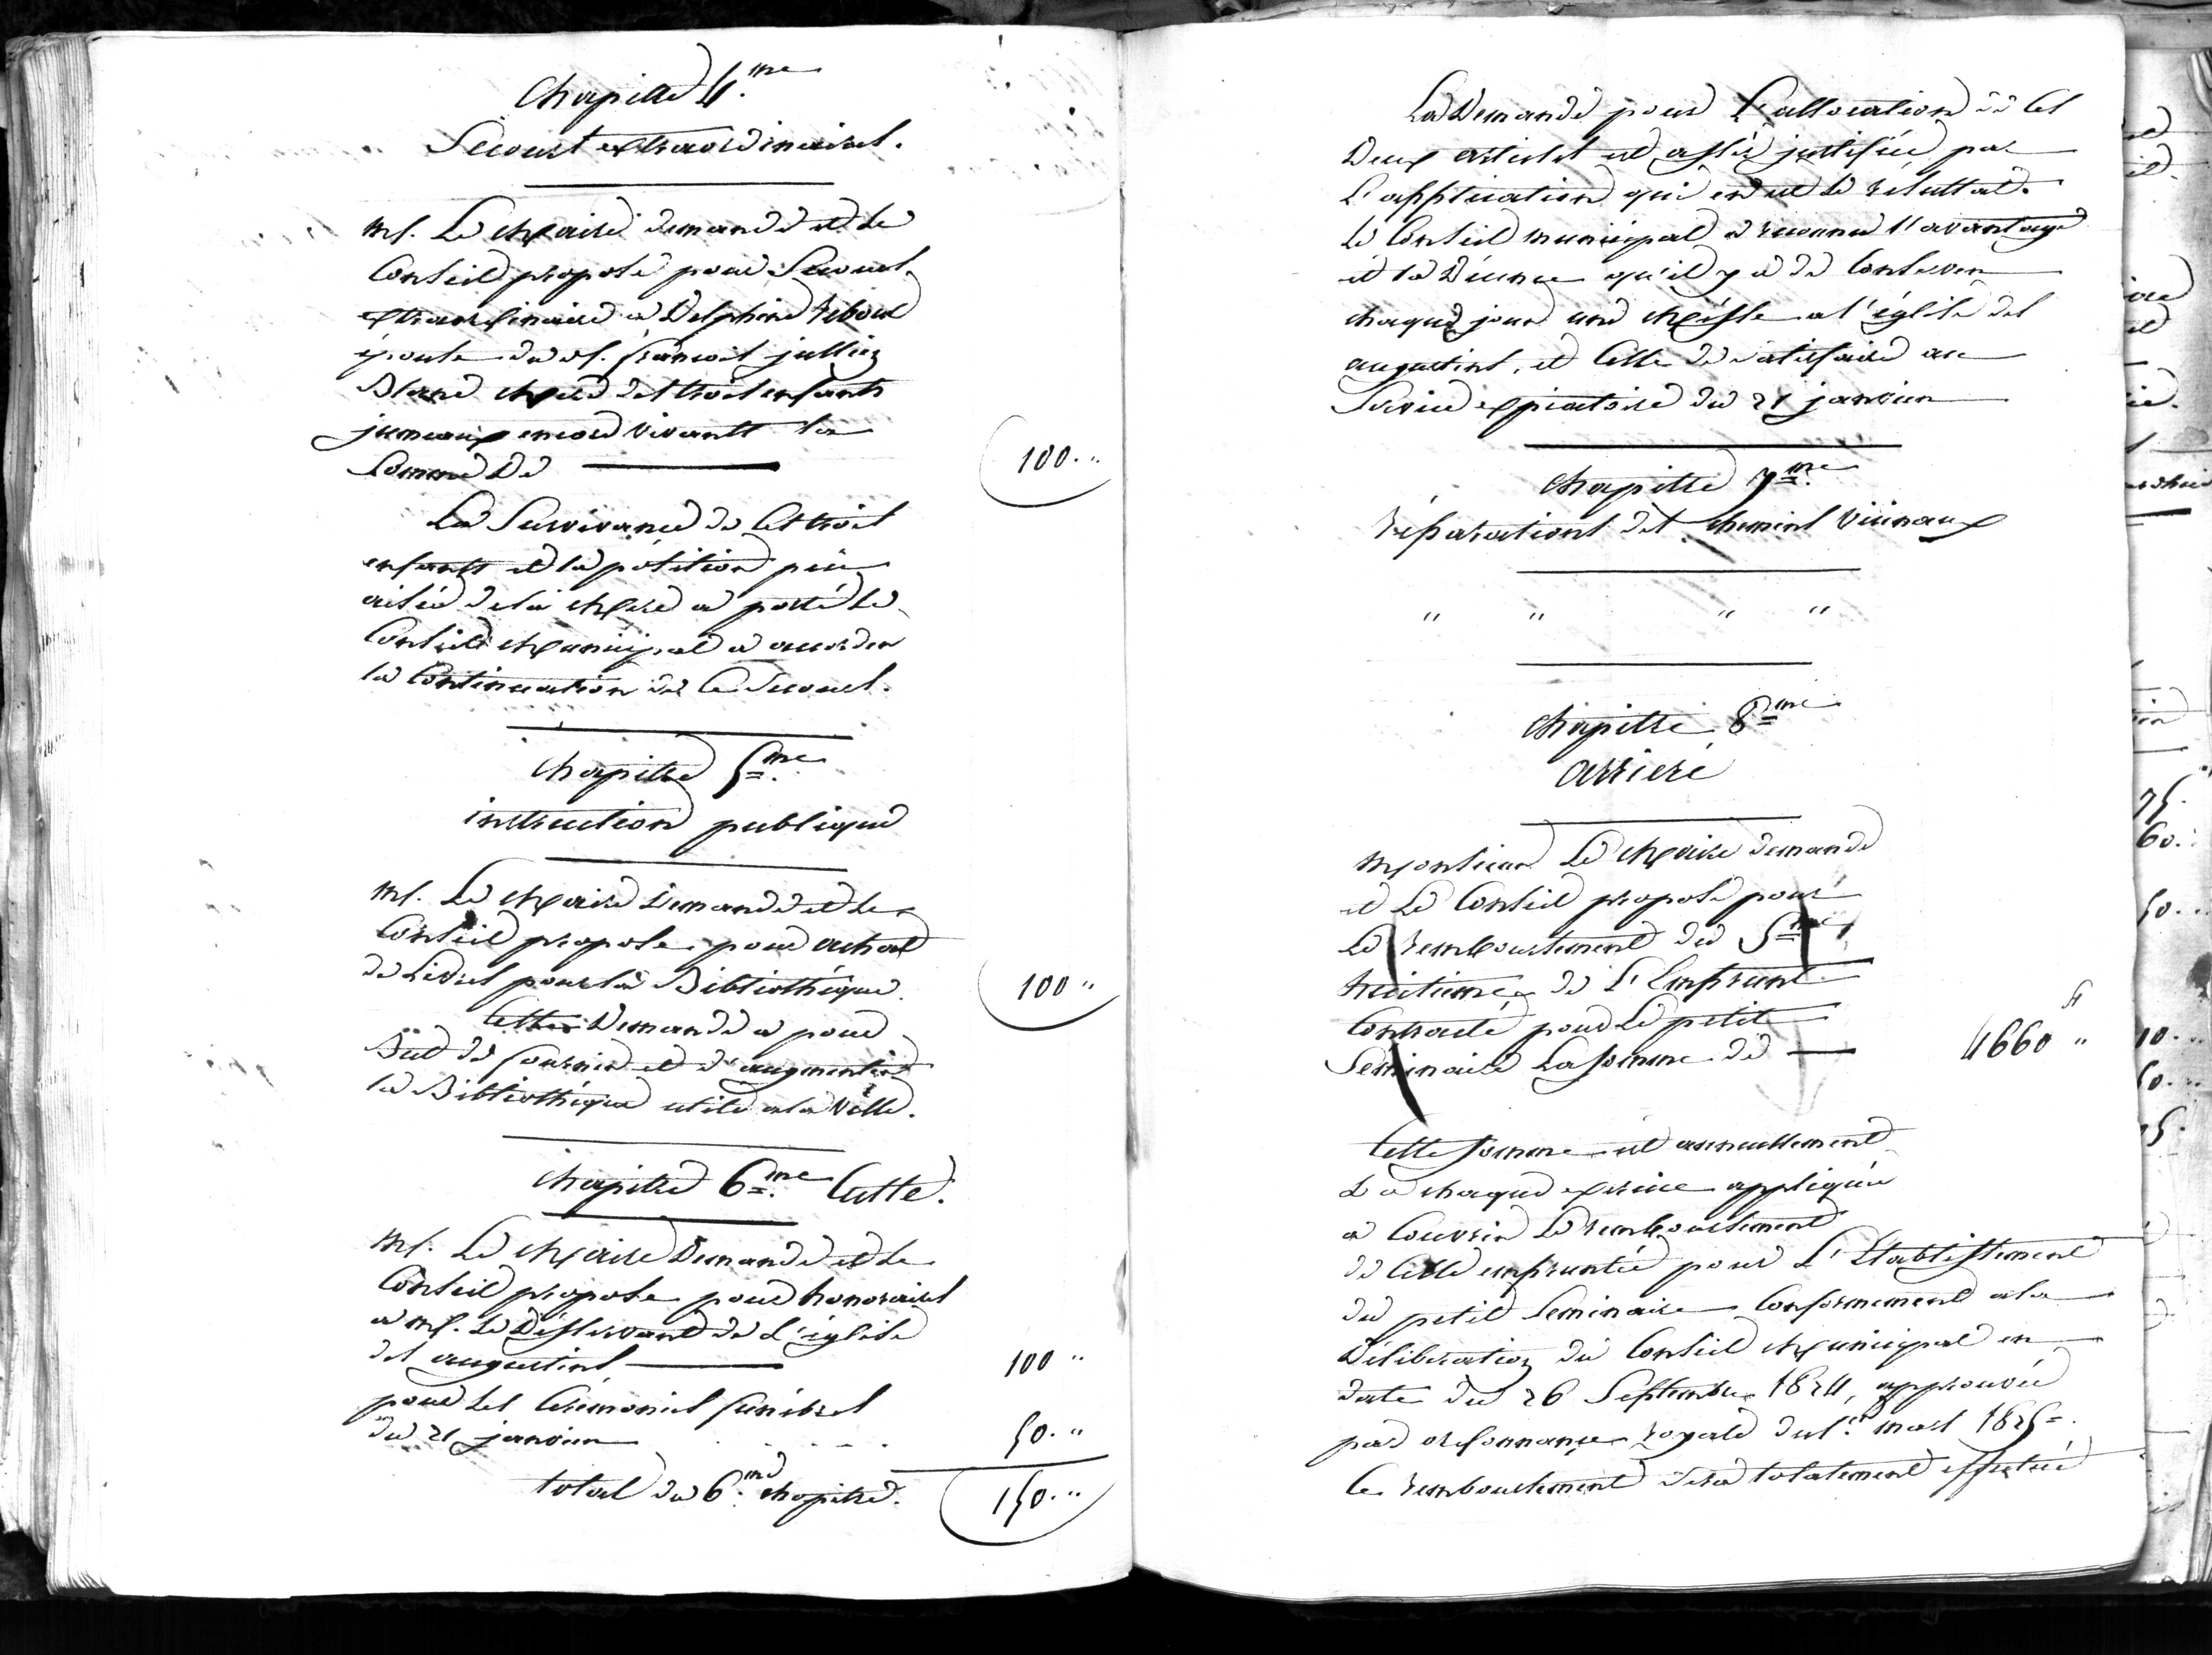 Chapitre 4.me
Secours extraordinaires.
Mr. Le Maire demande et le
Conseil propose pour Secours
extraordinaire a Delphine Reboul
épouse du sr. françois jullien
Blanc Mere des trois enfants
jumeaux encore vivants la
Somme De 100. "
La Survivance de Ces trois
enfants et la position peu
aisée de la Mere a porté le
Conseil Municipal a accorder
la Continuation de Ce Secours.
Chapitre 5me.
instruction publique
Mr. Le Maire Demande et le
Conseil propose pour achat
de Livres pour la Bibliothéque. 100 "
Cette Demande a pour
But de fournir et d'augmenter
la Bibliothéque utile a la Ville.
Chapitre 6me. Culte.
Mr. Le Maire Demande et le
Conseil propose pour honoraires
a Mr. Le Desservant de L'église
des augustins 100 "
pour les Cérémonies funébres
du 21 janvier 50. "
total du 6.me chapitre. 150. "
La Demande pour L'allocation de Ces
Deux articles est assés justifiée par
L'application qui en est le résultat.
Le Conseil municipal a reconnu l'avantage
et la Décence qu'il y a de Conserver
chaque jour une Messe a l'église des
augustins, et Celle de satisfaire au
Service expiatoire du 21 janvier
Chapitre 7me.
réparations des chemins Vicinaux
" " " "
Chapitre 8me
arrieré
Monsieur Le Maire demande
et Le Conseil propose pour
Le remboursement du 5me
huitieme de L'Emprunt
Contracté pour Le petit
Seminaire La somme de 4660 fr "
Cette somme est annuellement
& a chaque exercice appliquée
a Couvrir Le remboursement
de Celle empruntée pour L'Etablissement
du petit Seminaire Conformement a la
Déliberation du Conseil Municipal en
date du 26 Septembre 1824, approuvée
par ordonnance royale du 1.er mars 1825.
Ce remboursement sera totalement effectué